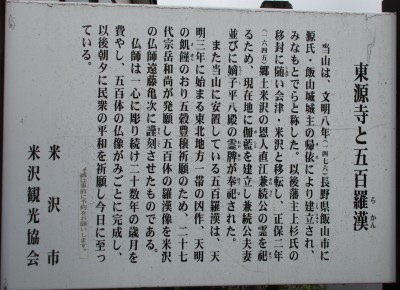 東源寺と五百羅漢
らかん
当山は、文明八年(一四七六)長野県飯山市に
源氏・飯山城城主の帰依により建立され、
みなもとでらと称した。以後藩主上杉氏の
移封に随い会津・米沢と移転し、正保二年
(一六四五)郷土米沢の恩人直江兼続公の霊を祀
るため、現在地に伽藍を建立し兼続公夫妻
並びに嫡子平八殿の霊牌が奉祀された。
また当山に安置している五百羅漢は、天
明三年に始まる東北地方一帯の凶作、天明
の飢饉のおり五穀豊穣祈願のため、二十七
代宗岳和尚が発願し五百体の羅漢像を米沢
の仏師遠藤亀次に謹刻させたものである。
仏師は一心に彫り続け二十数年の歳月を
費やし、五百体の仏像がみごとに完成し、
以後朝夕に民衆の平和を祈願し今日に至っ
ている。
米沢市
米沢観光協会